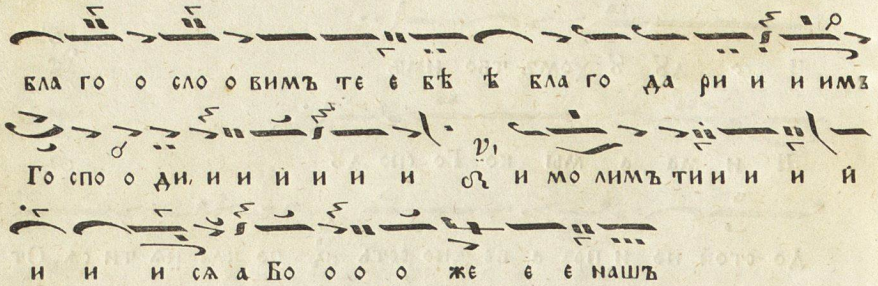 бла го о сло о вимъ те е бѣ ѣ бла го да ри и и имъ
Го спо о ди, и и й и и и и мо лимъ ти и и и й
и и и ся а Бо о о о же е е нашъ